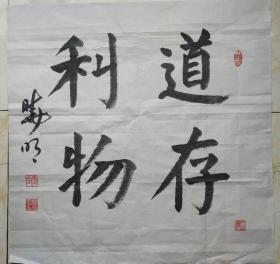 道存
利物
晓明